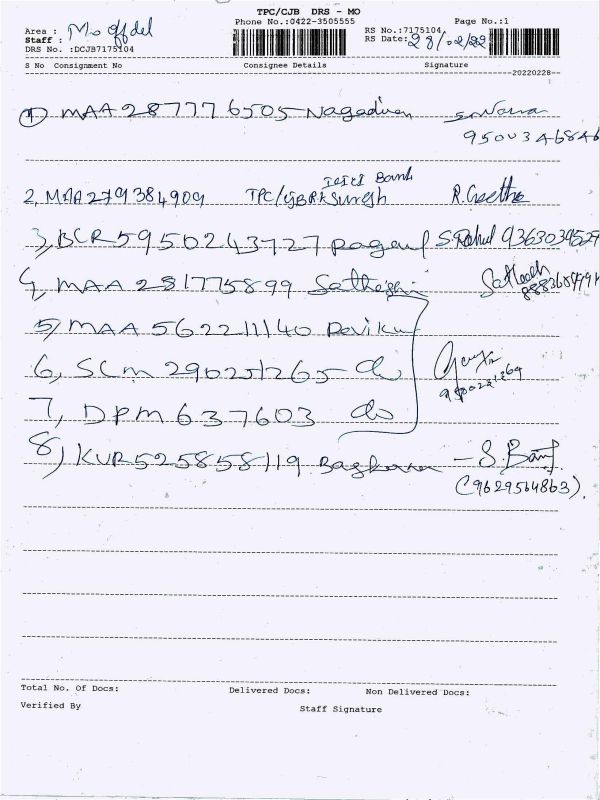 TPC/CJB DRS - MO
Phone No.:0422-3505555 Page No.:1
Area : Mo off del
Staff :
DRS No. :DCJB7175104
RS No.:7175104
RS Date: 28/02/22
S No Consignment No Consignee Details Signature
20220228
1) MAA 287776505
95003 46846
2, MAA279384909 TPC/CJB RK Suresh ICICI Bank R. Geetha
3, BCR5950243727 S. Rahul 9363039529
4, MAA 281775899
5) MAA 562211140 Raviku
6, SCM 290251265 do
7, DPM 637603 do
8) KUR525858119 Baskaran - S. Bas
(9629564863).
Total No. Of Docs: Delivered Docs: Non Delivered Docs:
Verified By Staff Signature